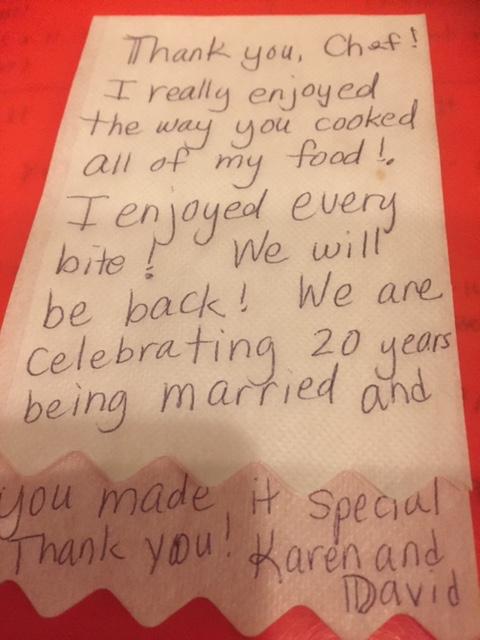 Thank you, Chef!
I really enjoyed
the way you cooked
all of my food!.
I enjoyed every
bite! We will
be back! We are
celebrating 20 years
being married and
you made it special
Thank you! Karen and
David